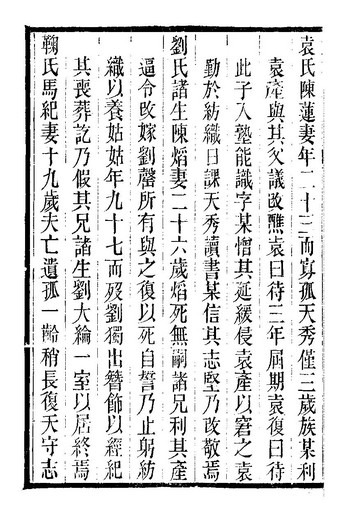 袁氏陳蓮妻年二十三而寡孤天秀僅三歲族某利
袁產與其父議改醮袁曰待三年屆期袁復曰待
此子入塾能識字某憎其延緩侵袁產以窘之袁
勤於紡織日課天秀讀書某信其志堅乃改敬焉
劉氏諸生陳熖妻二十六歲熖死無嗣諸兄利其產
逼令改嫁劉罄所有與之復以死自誓乃止躬紡
織以養姑姑年九十七而歿劉獨出簪飾以經紀
其喪葬訖乃假其兄諸生劉大綸一室以居終焉
鞠氏馬紀妻十九歲夫亡遺孤一齡稍長復夭守志